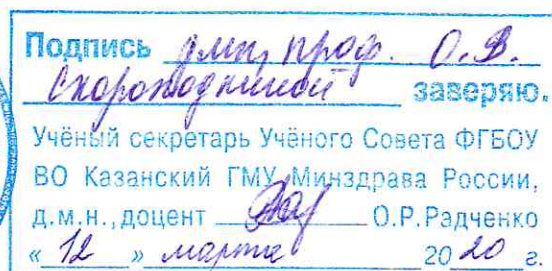 Подпись дмн, проф. О.В.
Скороходкиной заверяю.
Учёный секретарь Учёного Совета ФГБОУ
ВО Казанский ГМУ Минздрава России,
д.м.н., доцент О.Р.Радченко
« 12 » марта 20 20 г.